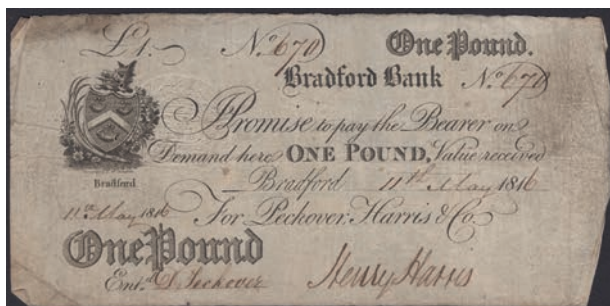 £1. No. 670 One Pound.
Bradford Bank No. 670
I Promise to pay the Bearer on
Demand here ONE POUND, Value received
Bradford 11th May 1816
Bradford
11th May 1816 For Peckover, Harris & Co.
One Pound
Entd. D Peckover Henry Harris